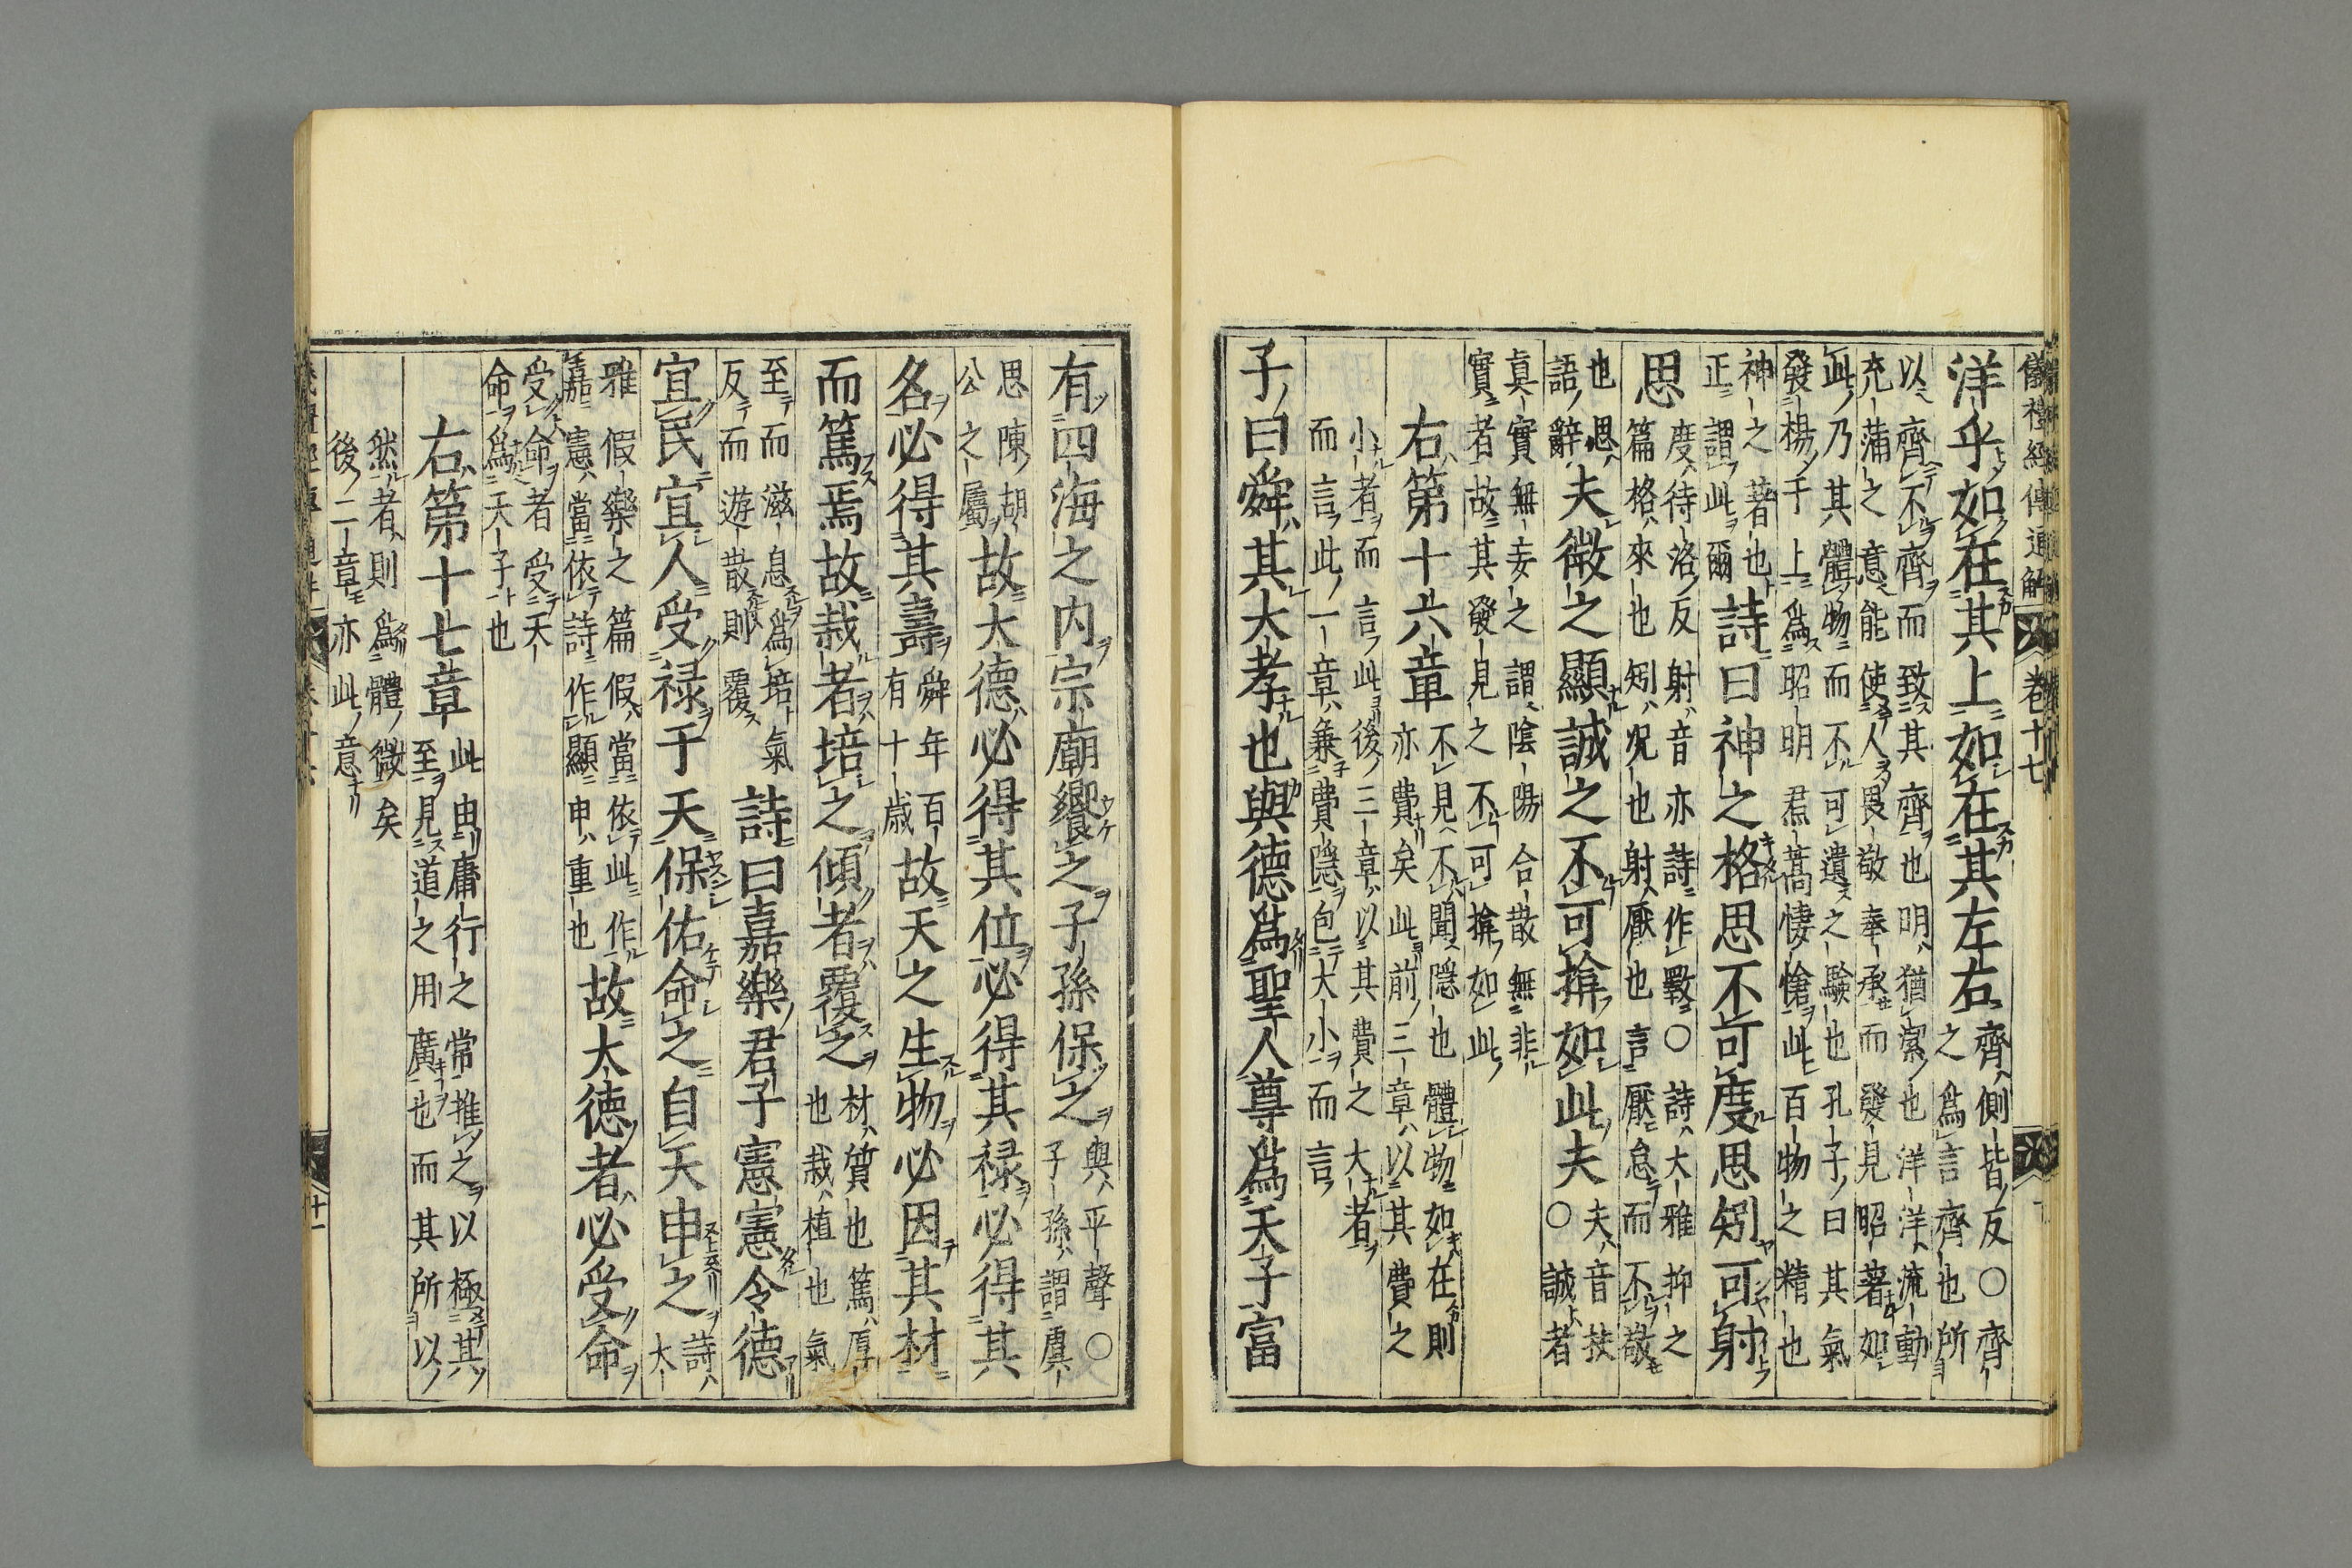 儀禮經傳通解 卷十七
洋乎如在其上如在其左右
齊側皆反○齊
之爲言齊也所
以齊不齊而致其齊也明猶潔也洋洋流動
充蒲之意能使人畏敬奉承而發見昭著如
此乃其體物而不可遺之驗也孔子曰其氣
發楊于上爲昭明焄蒿悽愴此百物之精也
神之著也
正謂此爾
詩曰神之格思不可度思矧可射
思
度待洛反射音亦詩作斁○詩大雅抑之
篇格來也矧况也射厭也言厭怠而不敬
也思
語辭
夫微之顯誠之不可揜如此夫
夫音扶
○誠者
眞實無妄之謂陰陽合散無非
實者故其發見之不可揜如此
右第十六章
不見不聞隱也體物如在則
亦費矣此前三章以其費之
小者而言此後三章以其費之大者
而言此一章兼費隱包大小而言
子曰舜其大孝也與德爲聖人尊爲天子富
有四海之内宗廟饗之子孫保之
與平聲○
子孫謂虞
思陳胡
公之屬
故大德必得其位必得其禄必得其
名必得其壽
舜年百
有十歳
故天之生物必因其材
而篤焉故栽者培之傾者覆之
材質也篤厚
也栽植也氣
至而滋息爲培氣
反而遊散則覆
詩曰嘉樂君子憲憲令德
宜民宜人受禄于天保佑命之自天申之
詩大
雅假樂之篇假當依此作
嘉憲當依詩作顯申重也
故大德者必受命
受命者受天
命爲天子也
右第十七章
此由庸行之常推之以極其
至見道之用廣也而其所以
然者則爲體微矣
後二章亦此意
十一